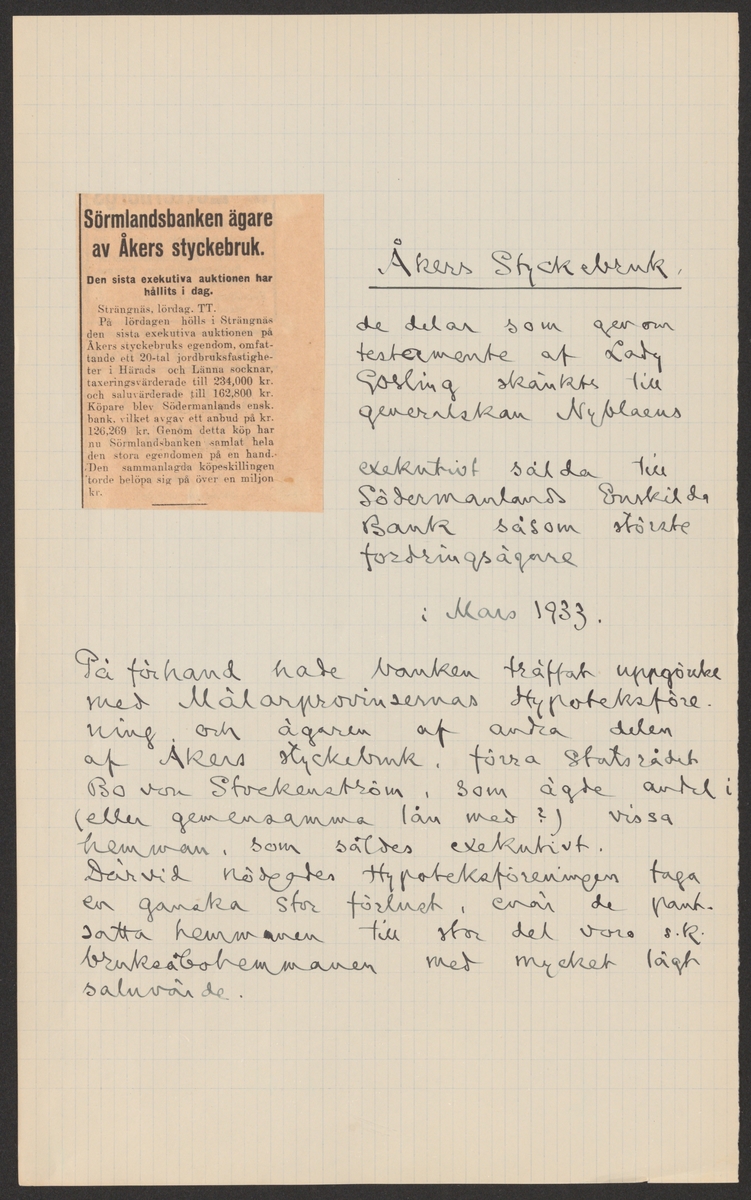 Sörmlandsbanken ägare
av Åkers styckebruk.
Den sista exekutiva auktionen har
hållits i dag.
Strängnäs, lördag. TT.
På lördagen hölls i Strängnäs
den sista exekutiva auktionen på
Åkers styckebruks egendom, omfat-
tande ett 20-tal jordbruksfastighe-
ter i Härads och Länna socknar,
taxeringsvärderade till 234,000 kr.
och saluvärderade till 162,800 kr.
Köpare blev Södermanlands ensk.
bank, vilket avgav ett anbud på kr.
126,269 kr. Genom detta köp har
nu Sörmlandsbanken samlat hela
den stora egendomen på en hand.
Den sammanlagda köpeskillingen
torde belöpa sig på över en miljon
kr.
Åkers Styckebruk.
de delar som genom
testamente af Lady
Gosling skänkts till
generalskan Nyblaeus
exekutivt sålda till
Södermanlands Enskilda
Bank såsom största
fordringsägare
i Mars 1933.
På förhand hade banken träffat uppgörelse
med Mälarprovinsernas Hypoteksföre-
ning och ägaren af andra delen
af Åkers styckebruk, förra Statsrådet
Bo von Stockenström, som ägde andel i
(eller gemensamma lån med?) vissa
hemman, som såldes exekutivt.
Därvid nödgades Hypoteksföreningen taga
en ganska stor förlust, enär de pant-
satta hemmanen till stor del voro s.k.
bruksåbohemmanen med mycket lågt
saluvärde.